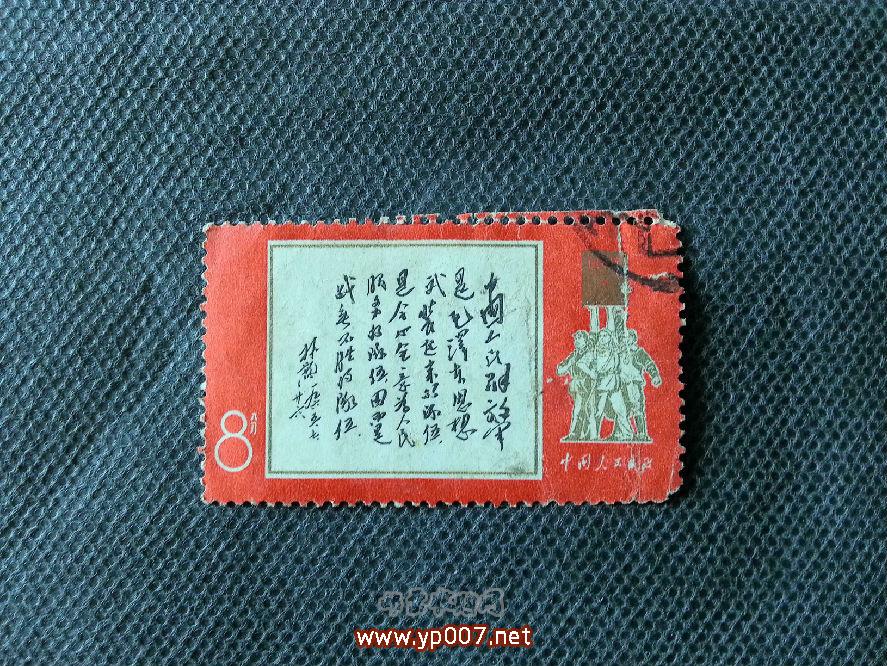 中国人民解放军
是毛泽东思想
武装起来的队伍
是全心全意为人民
服务的队伍因而是
战无不胜的队伍
林彪 一九六五 七
廿六
8
中国人民邮政
www.yp007.net